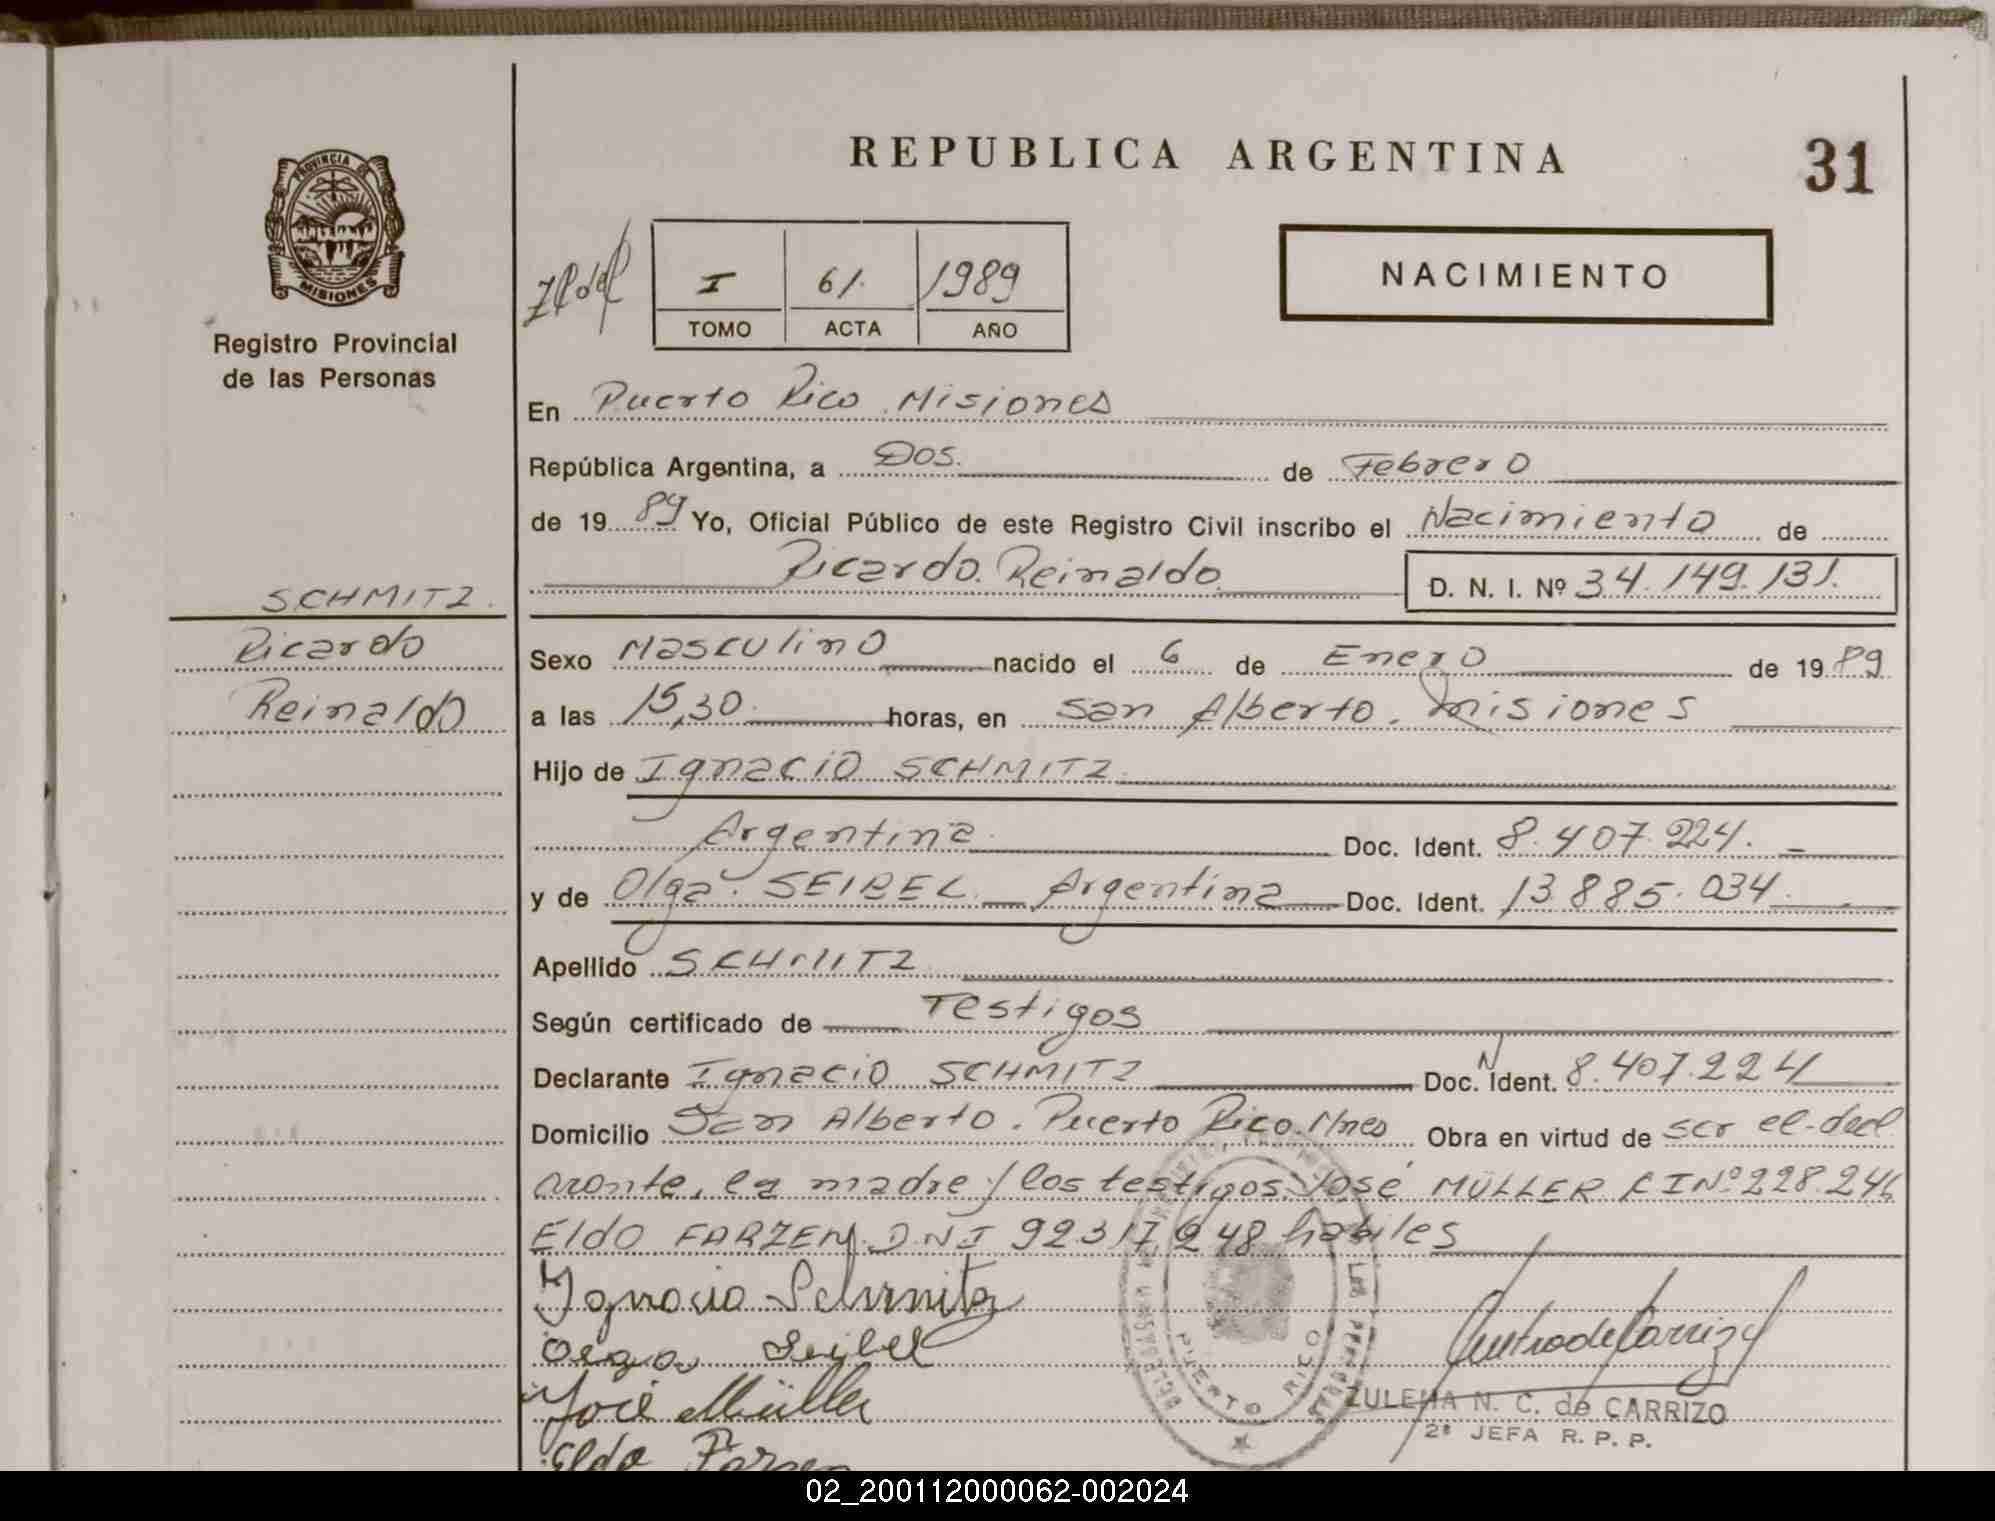 REPUBLICA ARGENTINA
31
PROVINCIA DE
MISIONES
Registro Provincial
de las Personas
I 61. 1989
TOMO ACTA AÑO
NACIMIENTO
En Puerto Rico Misiones
República Argentina, a Dos. de Febrero
de 19 89 Yo, Oficial Público de este Registro Civil inscribo el Nacimiento de
Ricardo. Reinaldo D. N. I. Nº 34.149.131.
SCHMITZ.
Ricardo
Reinaldo
Sexo Masculino nacido el 6 de Enero de 19 89
a las 15,30 horas, en San Alberto. Misiones
Hijo de Ignacio SCHMITZ
Argentina Doc. Ident. 8.407.224.
y de Olga. SEIBEL Argentina Doc. Ident. 13.885.034
Apellido SCHMITZ
Según certificado de Testigos
Declarante Ignacio SCHMITZ Doc. Ident. 8.407.224
Domicilio San Alberto. Puerto Rico. Mnes Obra en virtud de ser el decl
arante, la madre y los testigos José MÜLLER CINº 228.246
Eldo FARZEN D.N.I habiles
Ignacio Schmitz
Olga Seibel
José Müller
Eldo Farzen
PUERTO RICO
ZULEMA N. C. de CARRIZO
2ª JEFA R. P. P.
02_200112000062-002024